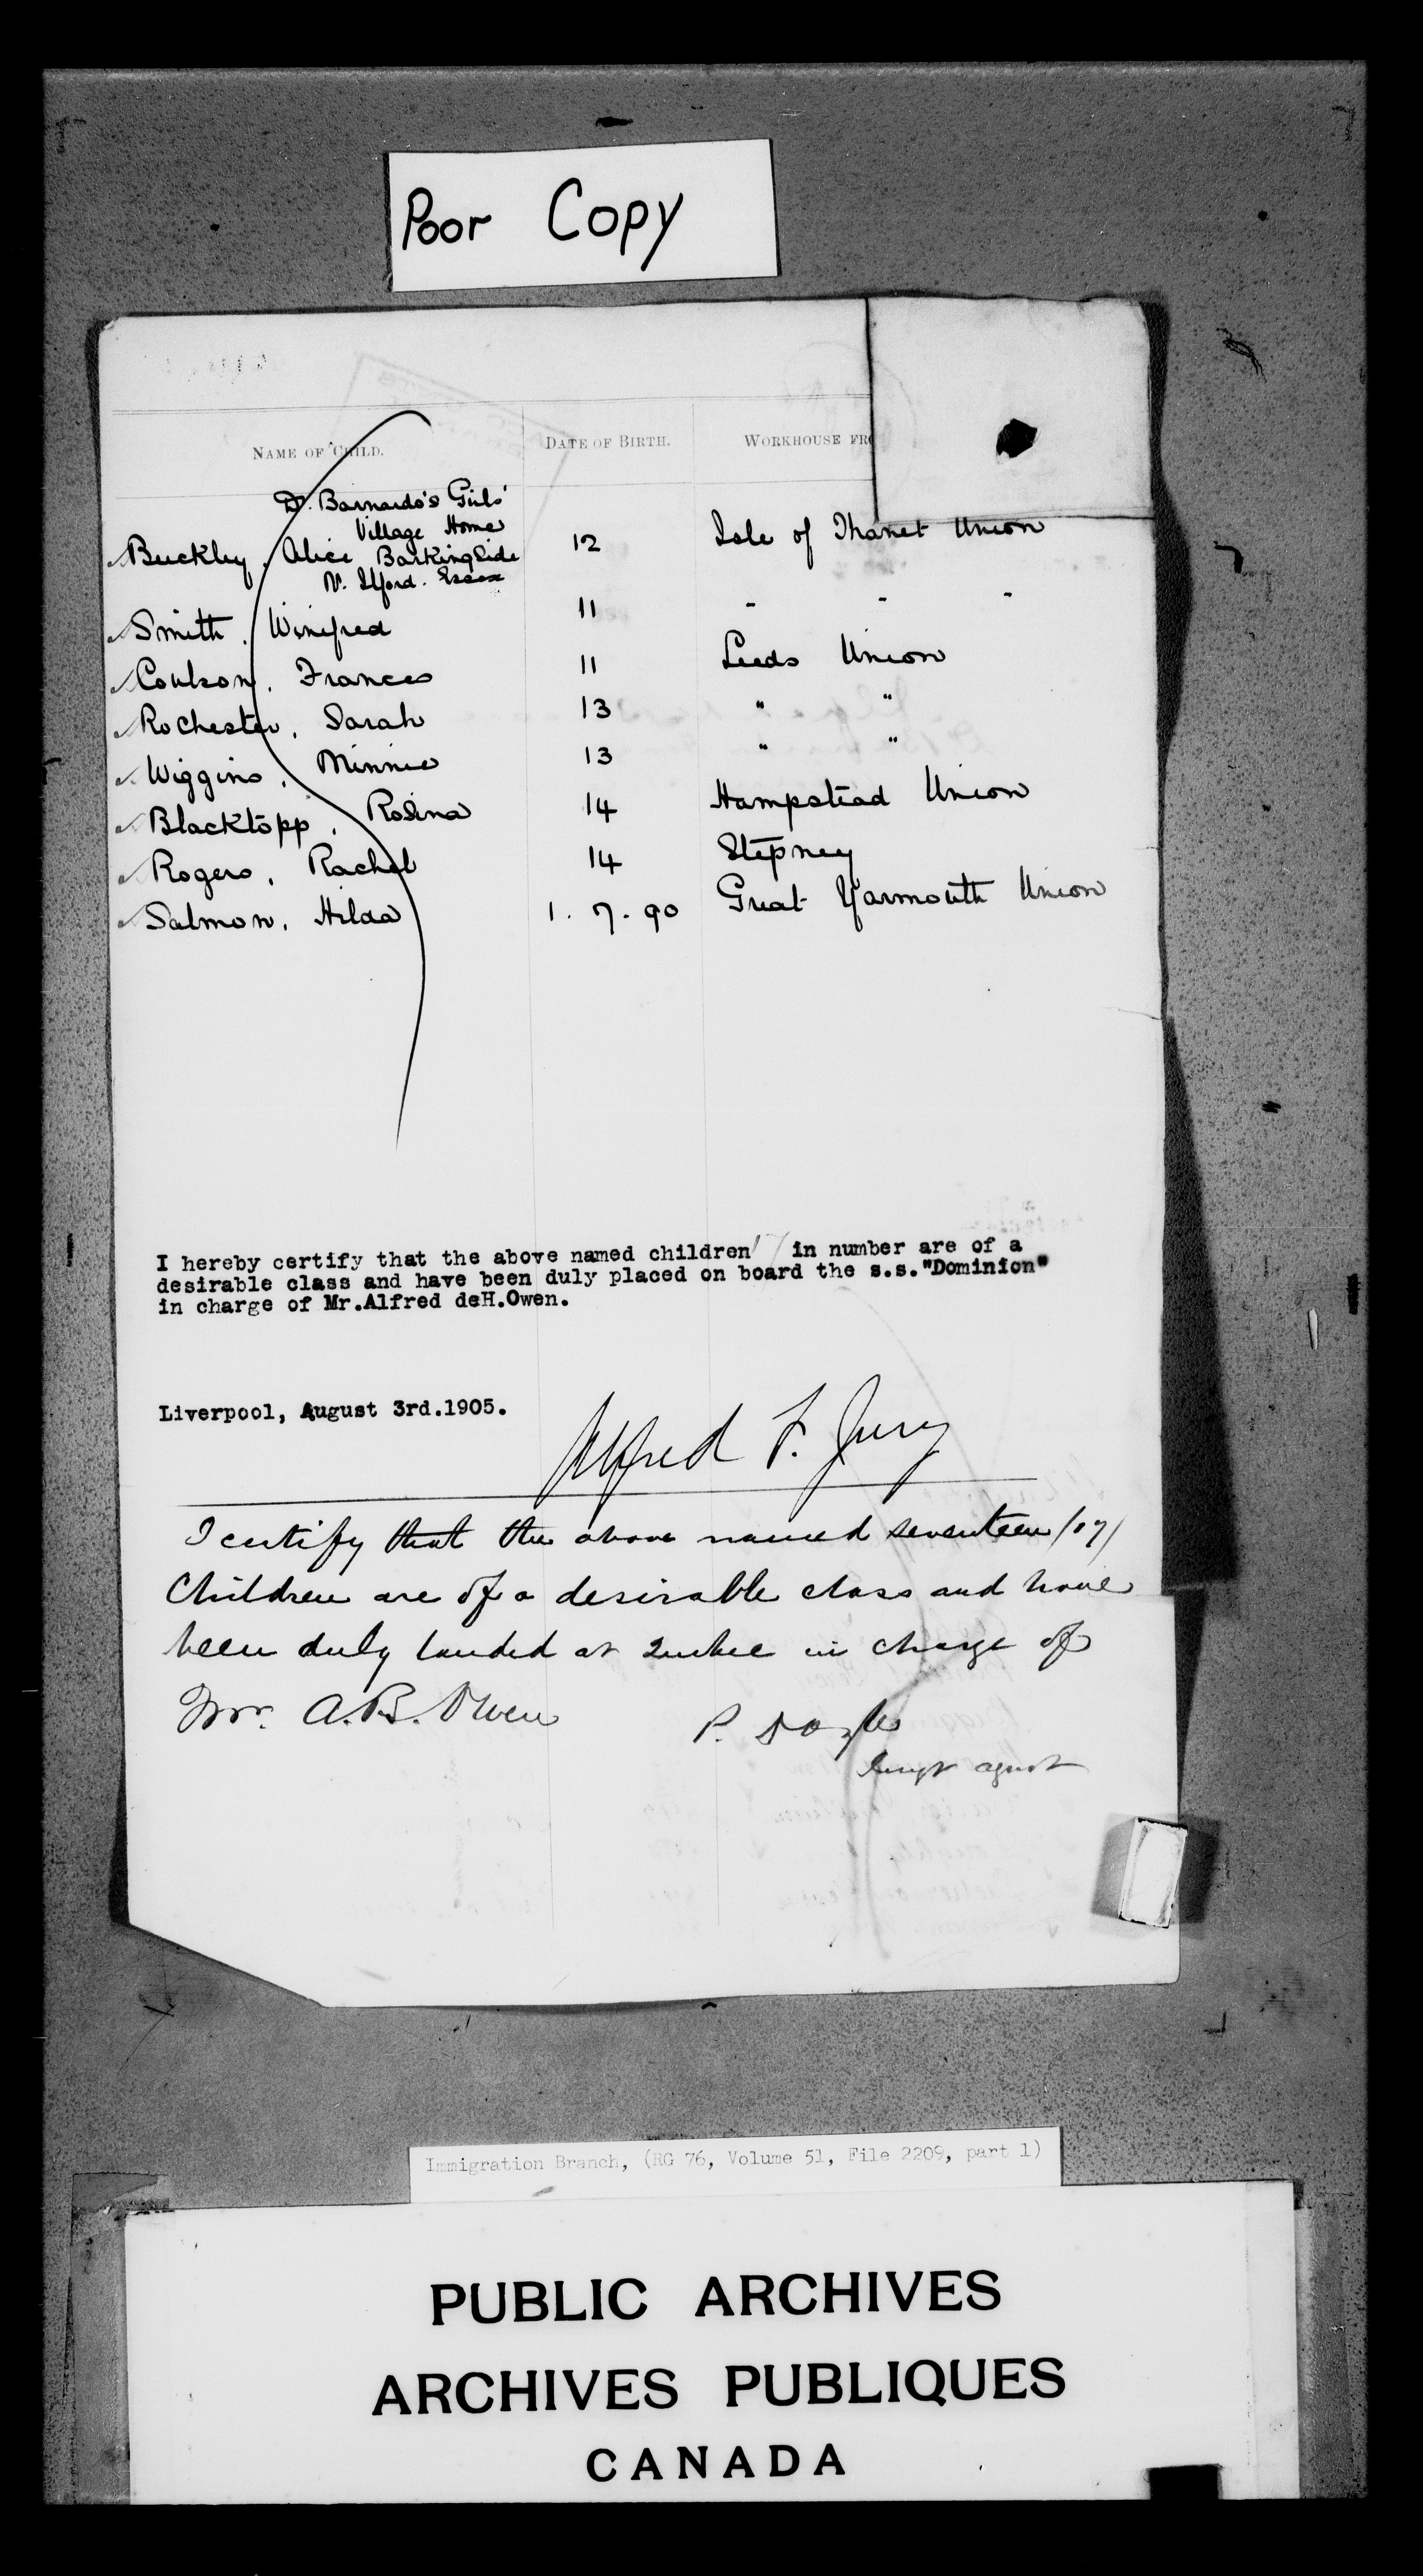 Poor Copy
NAME OF CHILD. DATE OF BIRTH. WORKHOUSE FRO
Dr. Barnardo's Girls'
Village Home
Buckley, Alice Barkingside 12 Isle of Thanet Union
Nr. Ilford. Essex
Smith, Winifred 11 - - -
Coulson, Frances 11 Leeds Union
Rochester, Sarah 13 " "
Wiggins, Minnie 13 " "
Blacktopp, Rosina 14 Hampstead Union
Rogers, Rachel 14 Stepney
Salmon, Hilda 1. 7. 90 Great Yarmouth Union
I hereby certify that the above named children 17 in number are of a
desirable class and have been duly placed on board the s.s."Dominion"
in charge of Mr.Alfred deH.Owen.
Liverpool, August 3rd.1905.
Alfred F. Jury
I certify that the above named seventeen /17/
Children are of a desirable class and have
been duly landed at Quebec in charge of
Mr. A.B. Owen
P. Doyle
Immgt agent
Immigration Branch, (RG 76, Volume 51, File 2209, part 1)
PUBLIC ARCHIVES
ARCHIVES PUBLIQUES
CANADA